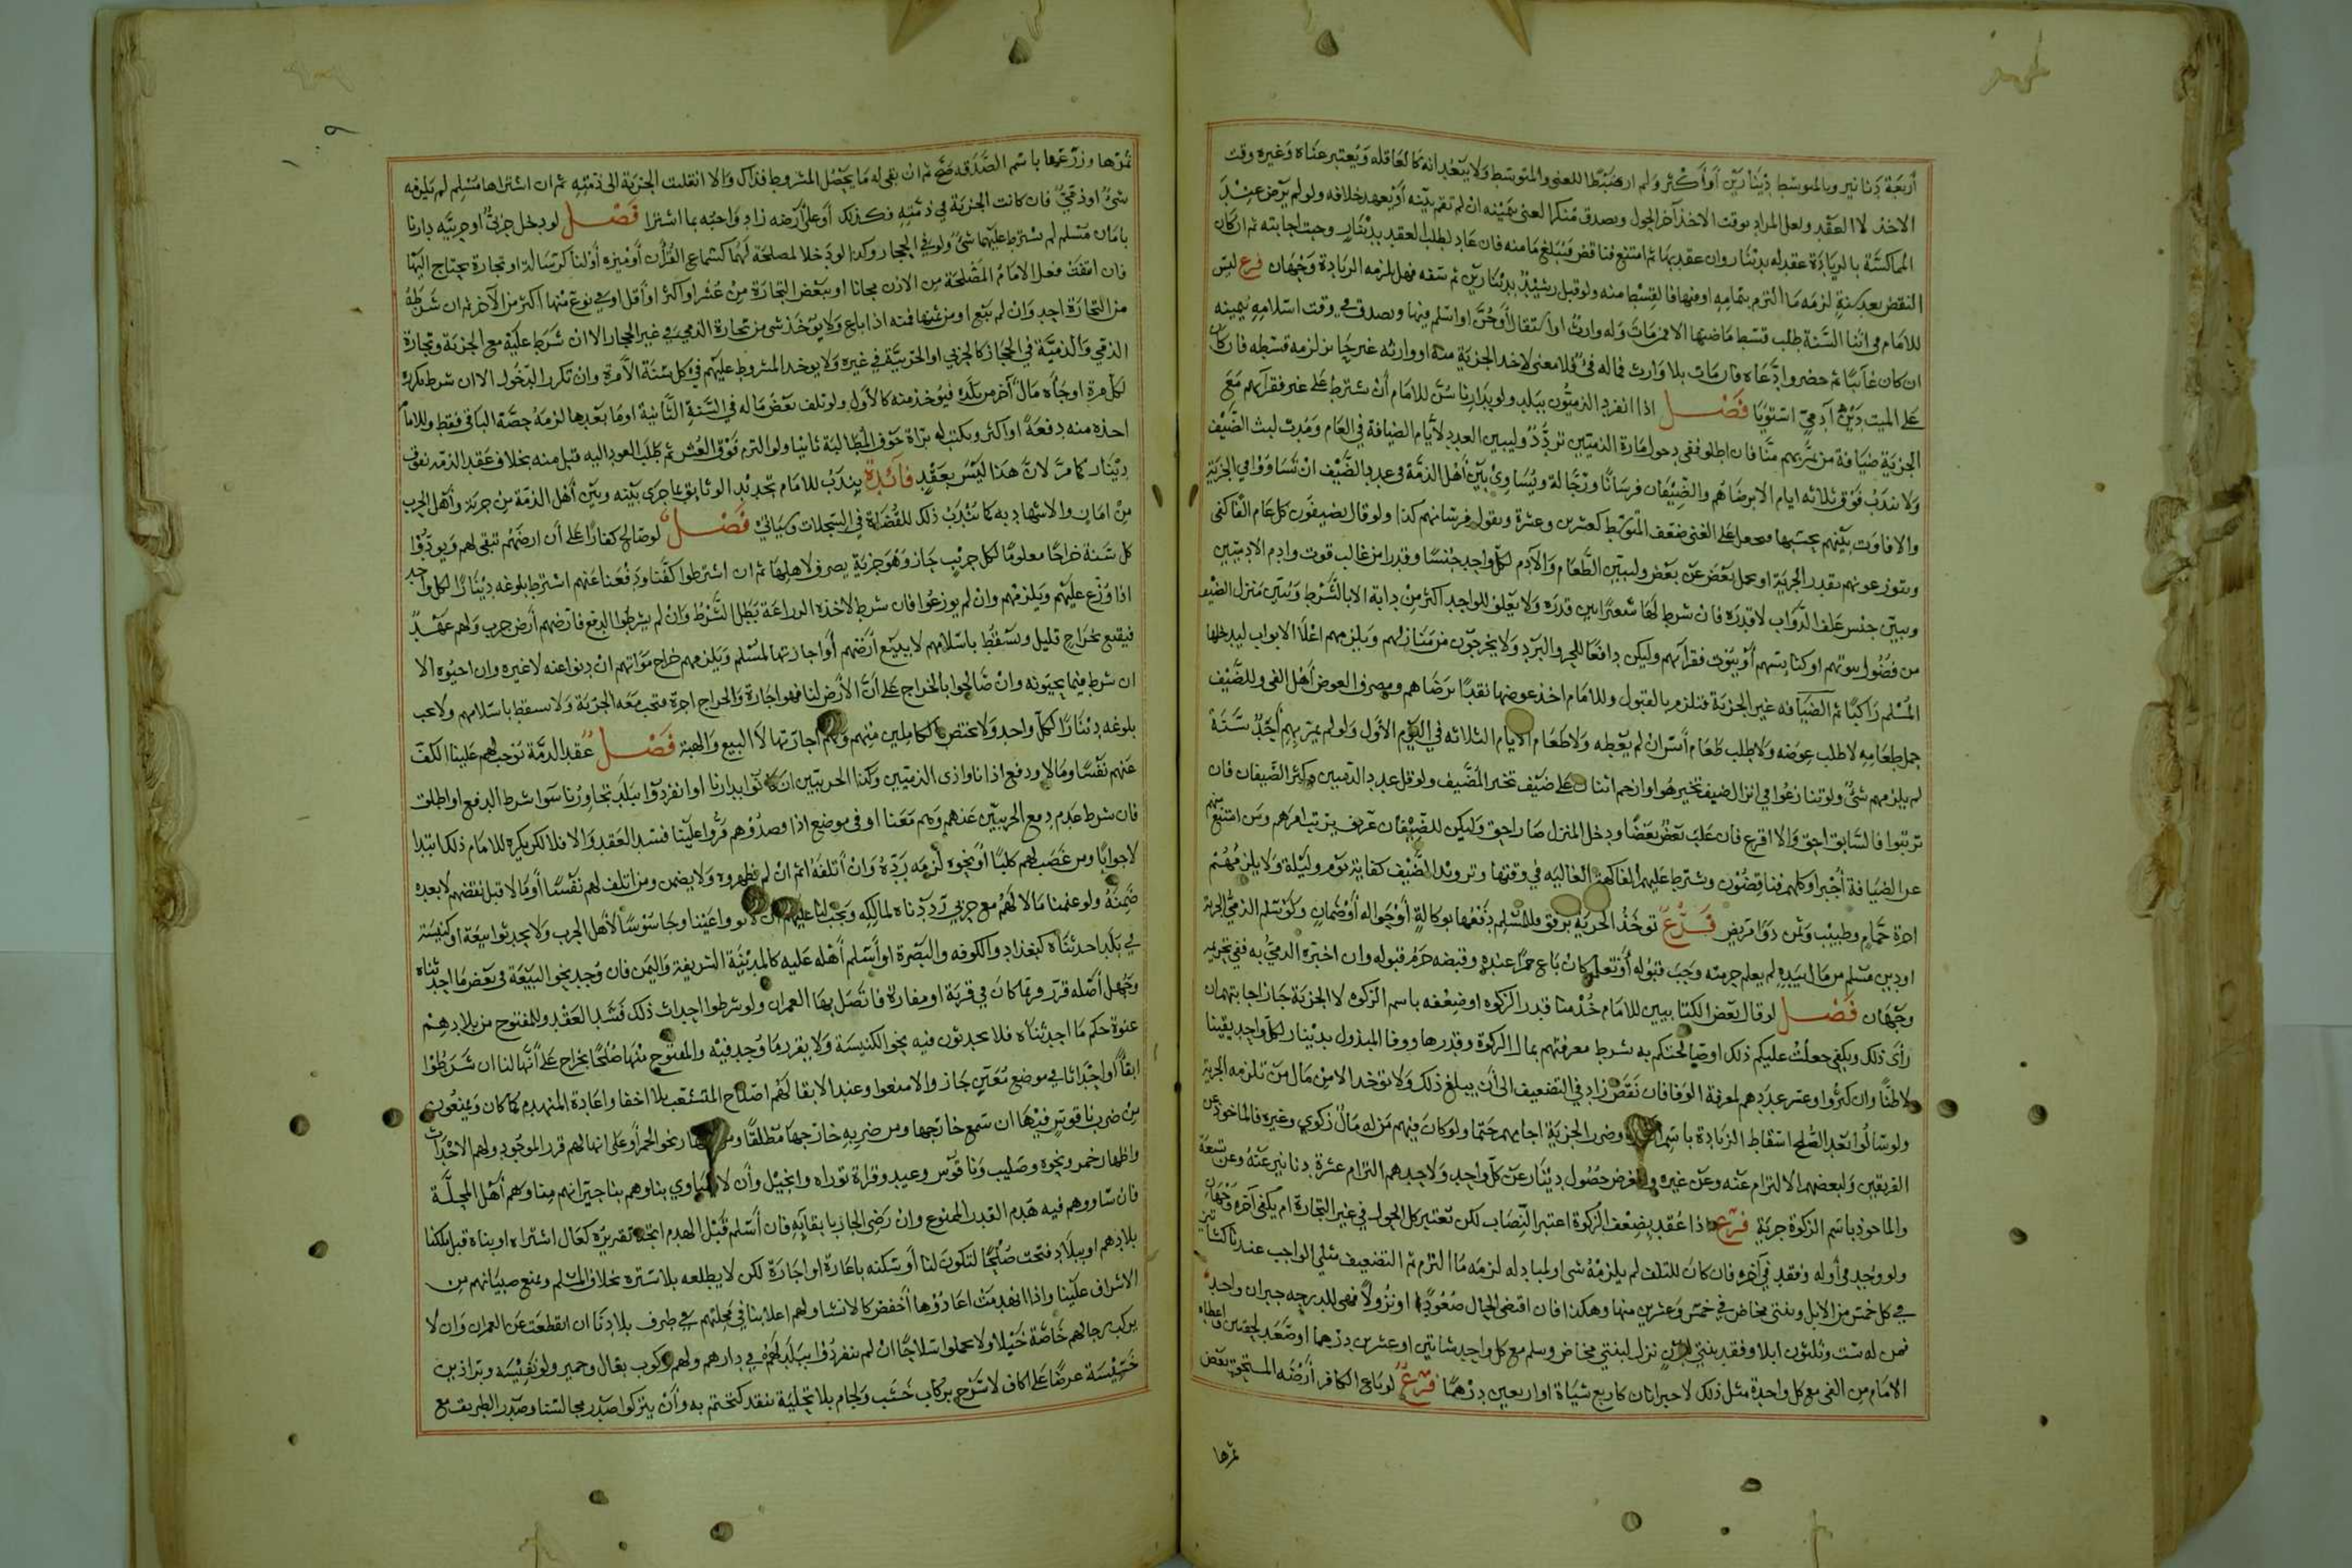 أربعة دنانير وبالمتوسط دينارين أو أكثر ولم ار ضبطا للغني والمتوسط ولا يبعد انه كالعاقلة ويعتبر عناه وغيره وقت
الاخذ لا العقد ولعل المراد بوقت الاخذ آخر الحول ويصدق منكر الغنى بيمينه ان لم تقم بينه أو يعهد خلافه ولو لم يرض عند
المماكسة بالزيادة عقد له بدينار وان عقد بها ثم امتنع فناقض فيبلغ مامنه فان عاد لطلب العقد بدينار وجبت اجابته ثم ان كان
النقض بعد سنة لزمه ما التزم بتمامه او فيها فالقسط منه ولو قبل رشيد بدينارين ثم سفه فهل يلزمه الزيادة وجهان فرع ليس
للامام في اثنا السنة طلب قسط ما مضى منها الا من مات وله وارث أو استقالا او جن او اسلم فيها ويصدق في وقت اسلامه بيمينه
ان كان غائبا ثم حضر وادعاه فان مات بلا وارث فماله فئ فلا معنى لاخذ الجزية منه او وارثه غير حائز لزمه قسطه فان كان
على الميت دين آدمي استويا فصل اذا انفرد الذميون ببلد ولو بدارنا سن للامام أن يشترط على غير فقرآئهم مع
الجزية ضيافة من يمر بهم منا فان اطلق ففي دخول مارة الذميين تردد وليبين العدد لأيام الضيافة في العام ومدت لبث الضيف
ولا تندب فوق ثلاثه ايام الا برضاهم والضيفان فرسانا ورجالة ويساوي بين أهل الذمة في عدد الضيف ان تساووا في الجزية
والا فاوت بينهم بحسبها فيجعل على الغني ضعف المتوسط كعشرين وعشرة ويقول فرسانهم كذا ولو قال يضيفون كل عام الفا كفى
ويتوزعونهم بقدر الجزية او يحمل بعض عن بعض وليبين الطعام والآدم لكل واحد جنسا وقدرا من غالب قوت وادم الادميين
ويبين جنس علف الدواب لا قدره فان شرط لها شعيرا بين قدره ولا يعلف للواحد اكثر من دابة الا بالشرط ويبين منزل الضيف
من فضول بيوتهم او كنائسهم أو بيوت فقرآئهم وليكن دافعا للحر والبرد ولا يخرجون من منازلهم ويلزمهم اعلا الابواب ليدخلها
المسلم راكبا ثم الضيافه غير الجزية فتلزم بالقبول وللامام اخذ عوضها نقدا برضاهم ومصرف العوض أهل الفي وللضيف
حمل طعامه لا طلب عوضه ولا يطلب طعام أمس ان لم يعطه ولا طعام الايام الثلاثه في اليوم الأول ولو لم يمر بهم أحد سنة
لم يلزمهم شئ ولو تنازعوا في انزال ضيف تخير هو او ازدحم اثنان على ضيف تخير المضيف ولو قل عدد الذميين وكثر الضيفان فان
ترتبوا فالسابق احق والا اقرع فان غلب بعض بعضا ودخل المنزل صار احق وليكن للضيفان عريف يرتب امرهم ومن امتنع منهم
عن الضيافة أجبر او كلهم فناقضون ويشترط عليهم الفاكهة الغالبه في وقتها وتزويد الضيف كفاية يوم وليلة ولا يلزمهم
اجرة حمام وطبيب وثمن دوا مريض فرع توخذ الجزية برفق وللمسلم دفعها بوكالة أو حواله أو ضمان ولو تسلم الذمي الجزية
او دين مسلم من مال بيده لم يعلم حرمته وجب قبوله أو تعلم كان باع خمرا عنده وقبضه حرم قبوله وان اخبره الذمي به ففي تحريمه
وجهان فصل لو قال بعض الكتابيين للامام خذ منا قدر الزكوه او ضعفه باسم الزكوه لا الجزية جاز اجابتهم ان
رأى ذلك ويكفي جعلت عليكم ذلك او صالحتكم به بشرط معرفتهم بمال الزكوة وقدرها ووفا المبذول بدينار لكل واحد يقينا
لا ظنا وان كثروا وعسر عددهم لمعرفة الوفا فان نقص زاد في التضعيف الى أن يبلغ ذلك ولا توخذ الا من مال من تلزمه الجزية
ولو سألوا بعد الصلح اسقاط الزيادة وضرب الجزية اجابهم حتما ولو كان فيهم من له مال زكوي وغيره فالماخوذ عن
الفريقين ولبعضهم الالتزام عنه وعن غيره والغرض حصول دينار عن كل واحد ولاحدهم التزام عشرة دنانير عنه وعن تسعة
والماخوذ باسم الزكوة جزية فرع اذا عقد بضعف الزكوة اعتبر النصاب لكن تعتبر كل الحول في غير التجارة ام يكفي آخره وجهان
ولو وجد في أوله وفقد في آخره فان كان للتلف لم يلزمه شى او لمبادله لزمه ما التزم ثم التضعيف مثلي الواجب عندنا كشاتين
في كل خمس من الابل وبنتي مخاض في خمس وعشرين منها وهكذا فان اقتضى الحال صعودا او نزولا فهي للدرجه جبران واحد
فمن له ست وثلثون ابلا وفقد بنتي لبون نزل لبنتي مخاض وسلم مع كل واحد شاتين او عشرين درهما او صعد لحقتين واعطاه
الامام من الفي مع كل واحدة مثل ذلك لا جبرانان كاربع شياة او اربعين درهما فرع لو باع الكافر أرضه المستحق بعض
ثمرها
ثمرها وزرعها باسم الصدقه صح ثم ان بقى له ما يحصل المشروط فذاك والا انقلبت الجزية الى ذمته ثم ان اشتراها مسلم لم يلزمه
شئ او ذمي فان كانت الجزية في ذمته فكذلك أو على أرضه زاد واجبه بما اشترا فصل لو دخل حربي او حربيه دارنا
بامان مسلم لم يشترط عليهما شئ ولو في الحجاز وكذا لو دخلا لمصلحة لهما كسماع القرآن أو ميره أو لنا كرسالة او تجارة يحتاج اليها
فان اتفقت فعل الامام المصلحة من الاذن مجانا او ببعض التجارة من عشر او اكثر او أقل او في نوع منها اكثر من الآخر ثم ان شرطه
من التجارة اخذ وان لم يبع او من ثمنها فمنه اذا باع ولا يوخذ شى من تجارة الذمي في غير الحجاز الا ان شرط عليه مع الجزية وتجارة
الذمي والذمية في الحجاز كالحربي او الحربية في غيره ولا يوخذ المشروط عليهم في كل سنة الا مرة وان تكرر الدخول الا ان شرط تكرره
لكل مرة او جآه مال آخر من بلده فيؤخذ منه كالأول ولو تلف بعض ماله في السنة الثانية او ما بعدها لزمه حصة الباقي فقط وللامام
اخذه منه دفعة او اكثر ويكتب له براة خوف المطالبة ثانيا ولو التزم فوق العشر ثم طلب العود اليه قبل منه بخلاف عقد الذمه بفوق
دينار كما مر لان هذا ليس بعقد فائدة يندب للامام تجديد الوثايق بما جرى بينه وبين أهل الذمة من جزية وأهل الحرب
من امان والاشهاد به كما يندب ذلك للقضاة في السجلات وسياتي فصل لو صالح كفارا على أن ارضهم تبقى لهم ويودوا
كل سنة خراجا معلوما لكل جريب جاز وهو جزية يصرف لاهلها ثم ان اشترطوا كفنا ودفعنا عنهم اشترط بلوغه دينارا لكل واحد
اذا وزع عليهم ويلزمهم وان لم يوزعوا فان شرط لاخذه الزراعة بطل الشرط وان لم يشرطوا الدفع فارضهم أرض حرب ولهم عهد
فيقنع بخراج قليل ويسقط باسلامهم لا ببيع أرضهم أو اجازتها لمسلم ويلزمهم خراج مواتهم ان دفعوا عنه لا غيره وان احيوه الا
ان شرط فيما يحيونه وان صالحوا بالخراج على أن الأرض لنا فهو اجارة والخراج اجرة فتجب معه الجزية ولا يسقط باسلامهم ولا يجب
بلوغه دينارا لكل واحد ولا يختص بالكاملين منهم ولهم اجارتها لا البيع والهبة فصل عقد الذمة يوجب لهم علينا الكف
عنهم نفسا ومالا ودفع اذانا واذى الذميين وكذا الحربيين ان كانوا بدارنا او انفردوا ببلد تجاورنا سوا شرط الدفع او اطلق
فان شرط عدم دفع الحربيين عنهم وهم معنا او في موضع اذا قصدوهم مروا علينا فسد العقد والا فلا لكن يكره للامام ذلك ابتدا
لا جوابا ومن غصب لهم كلبا أو نحوه لزمه رده وان أتلفه اثم ان لم يظهروه ولا يضمن ومن اتلف لهم نفسا أو مالا قبل نقضهم لا بعده
ضمنه ولو غنمنا مالا لهم مع حربي رددناه لمالكه ويجب لنا عليهم ان لا يوووا عينا وجاسوسا لأهل الحرب ولا يحدثوا بيعة او كنيسة
في بلد احدثناه كبغداد والكوفه والبصرة او أسلم أهله عليه كالمدينة الشريفة واليمن فان وجد نحو البيعة في بعض ما احدثناه
وجهل أصله قرر وربما كان في قرية او مفازة فاتصل بها العمران ولو شرطوا احداث ذلك فسد العقد والمفتوح من بلادهم
عنوة حكم ما احدثناه فلا يحدثون فيه نحو الكنيسة ولا يقرر ما وجد فيه والمفتوح منها صلحا بخراج على أنها لنا ان شرطوا
ابقاأ او احداثا في موضع معين جاز والا منعوا وعند الابقا لهم اصلاح المتشعب بلا اخفا واعادة المنهدم كما كان ويمنعون
من ضرب ناقوس فيها ان سمع خارجها ومن ضربه خارجها مطلقا نحو الخمر أو على انها لهم قرر الموجود ولهم الاحداث
واظهار خمر ونحوه وصليب وناقوس وعيد وقراة توراه وانجيل وأن لا يساوي بناوهم بنا جيرانهم منا وهم أهل المحلة
فان ساووهم فيه هدم القدر الممنوع وان رضى الجار بابقائه فان أسلم قبل الهدم اتجه تقريره كعال اشتراه او بناه قبل تملكنا
بلادهم او ببلاد فتحت صلحا لتكون لنا أو سكنه باعارة او اجارة لكن لا يطلعه بلا ستره بخلاف المسلم ويمنع صبيانهم من
الاشراف علينا واذا انهدمت اعادوها أخفض كالانشا ولهم اعلا بنا في محلتهم في طرف بلادنا ان انقطعت عن العمران وان لا
يركب رجالهم خاصة خيلا ولا يحملوا سلاحا ان لم ينفردوا ببلد لهم في دارهم ولهم ركوب بغال وحمير ولو نفيسه وبراذين
خسيسة عرضا على اكاف لا سرج بركاب خشب ولجام بلا تحلية بنقد كتختم به وأن يتركوا صدر مجالسنا وصدر الطريق مع